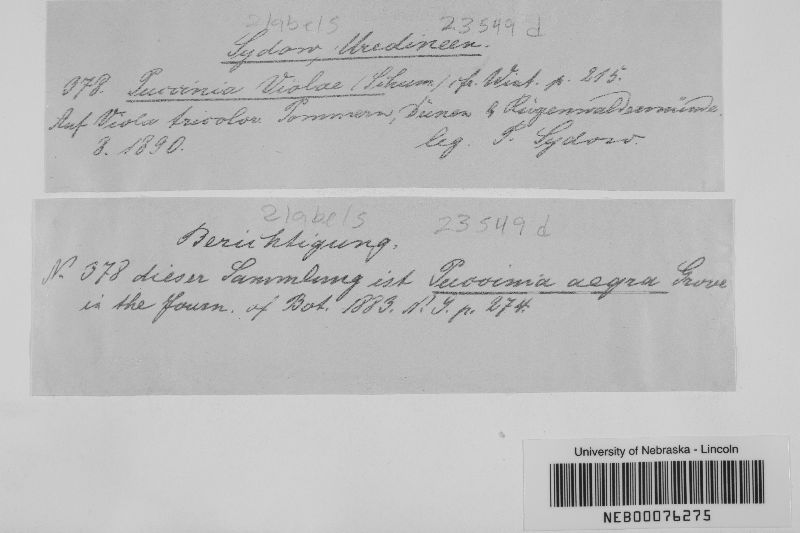 2 labels 23549 d
Sydow, Uredineen.
378. Puccinia Violae (Schum.) cfr. Wint. p. 215.
Auf Viola tricolor. Pommern, Dünen b. Rügenwaldermünde.
8. 1890. leg. P. Sydow.
2 labels 23549 d
Berichtigung.
No. 378 dieser Sammlung ist Puccinia aegra Grove
in the Journ. of Bot. 1883. p. 274.
University of Nebraska - Lincoln
NEB00076275